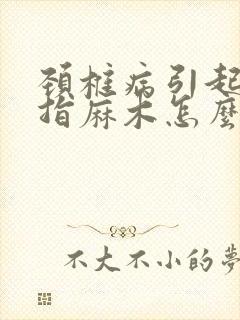 頚椎病引起
指麻木怎麼
不大不小的夢